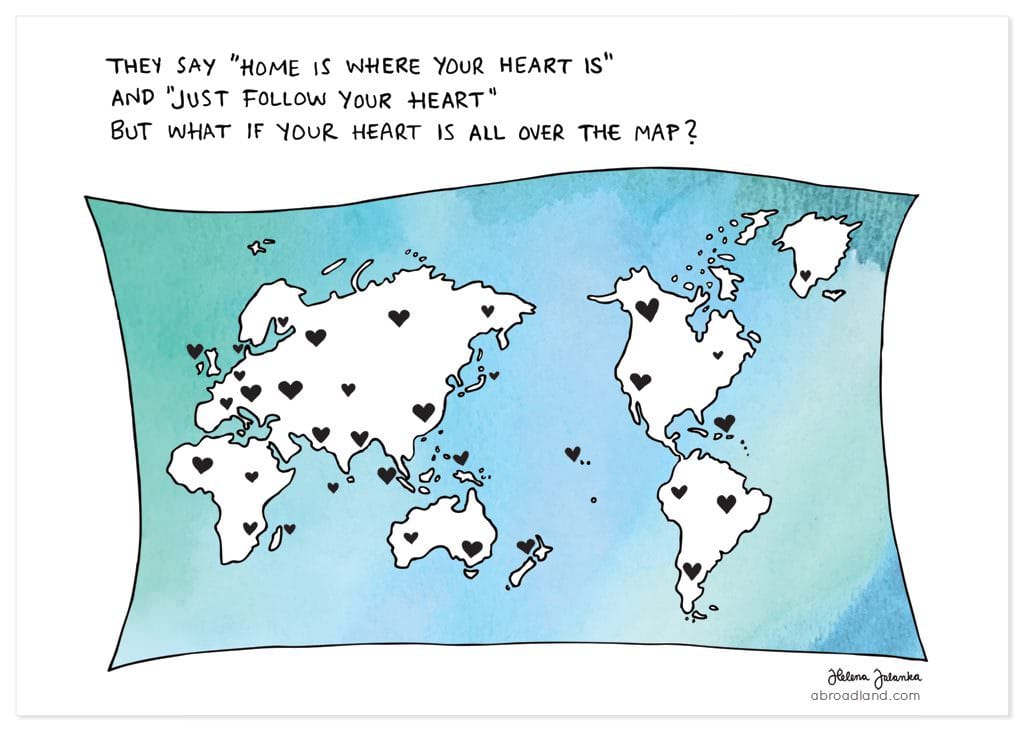 THEY SAY "HOME IS WHERE YOUR HEART IS"
AND "JUST FOLLOW YOUR HEART"
BUT WHAT IF YOUR HEART IS ALL OVER THE MAP?
Helena Jalanka
abroadland.com